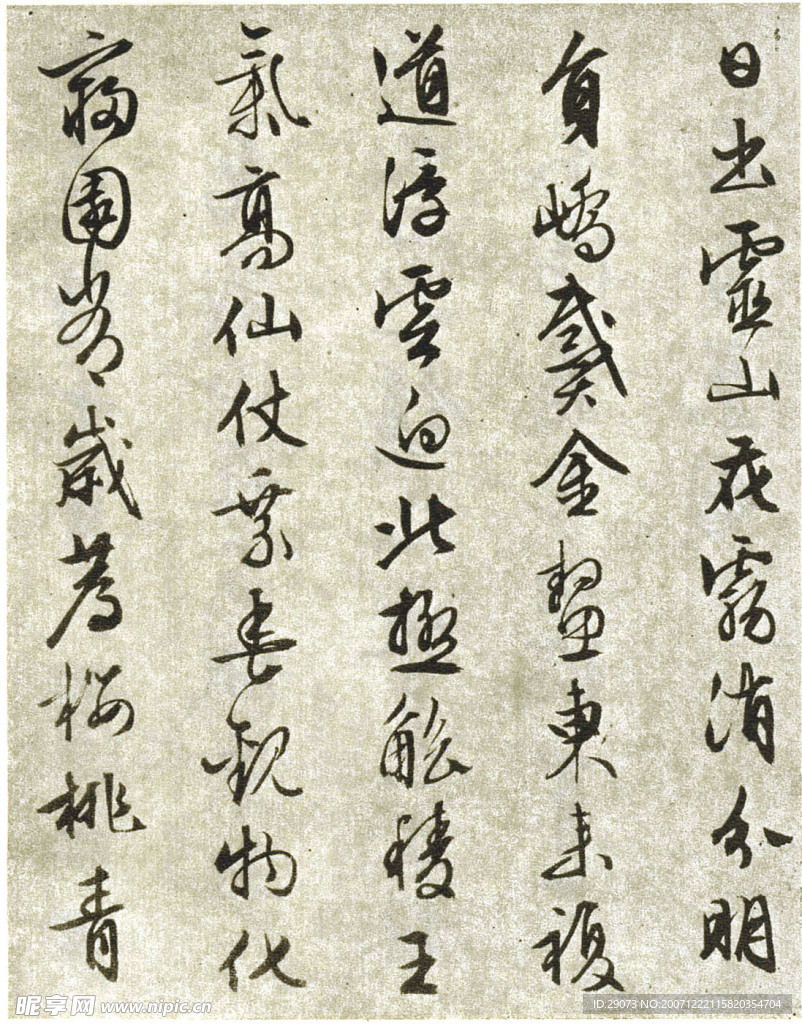 日出靈山花霧消分明
員嶠戴金鼇東来複
道浮雲迥北極觚稜王
氣高仙仗乘春觀物化
寢園常歲薦櫻桃青
昵享网 www.nipic.cn
ID:29073 NO:20071222115820354704